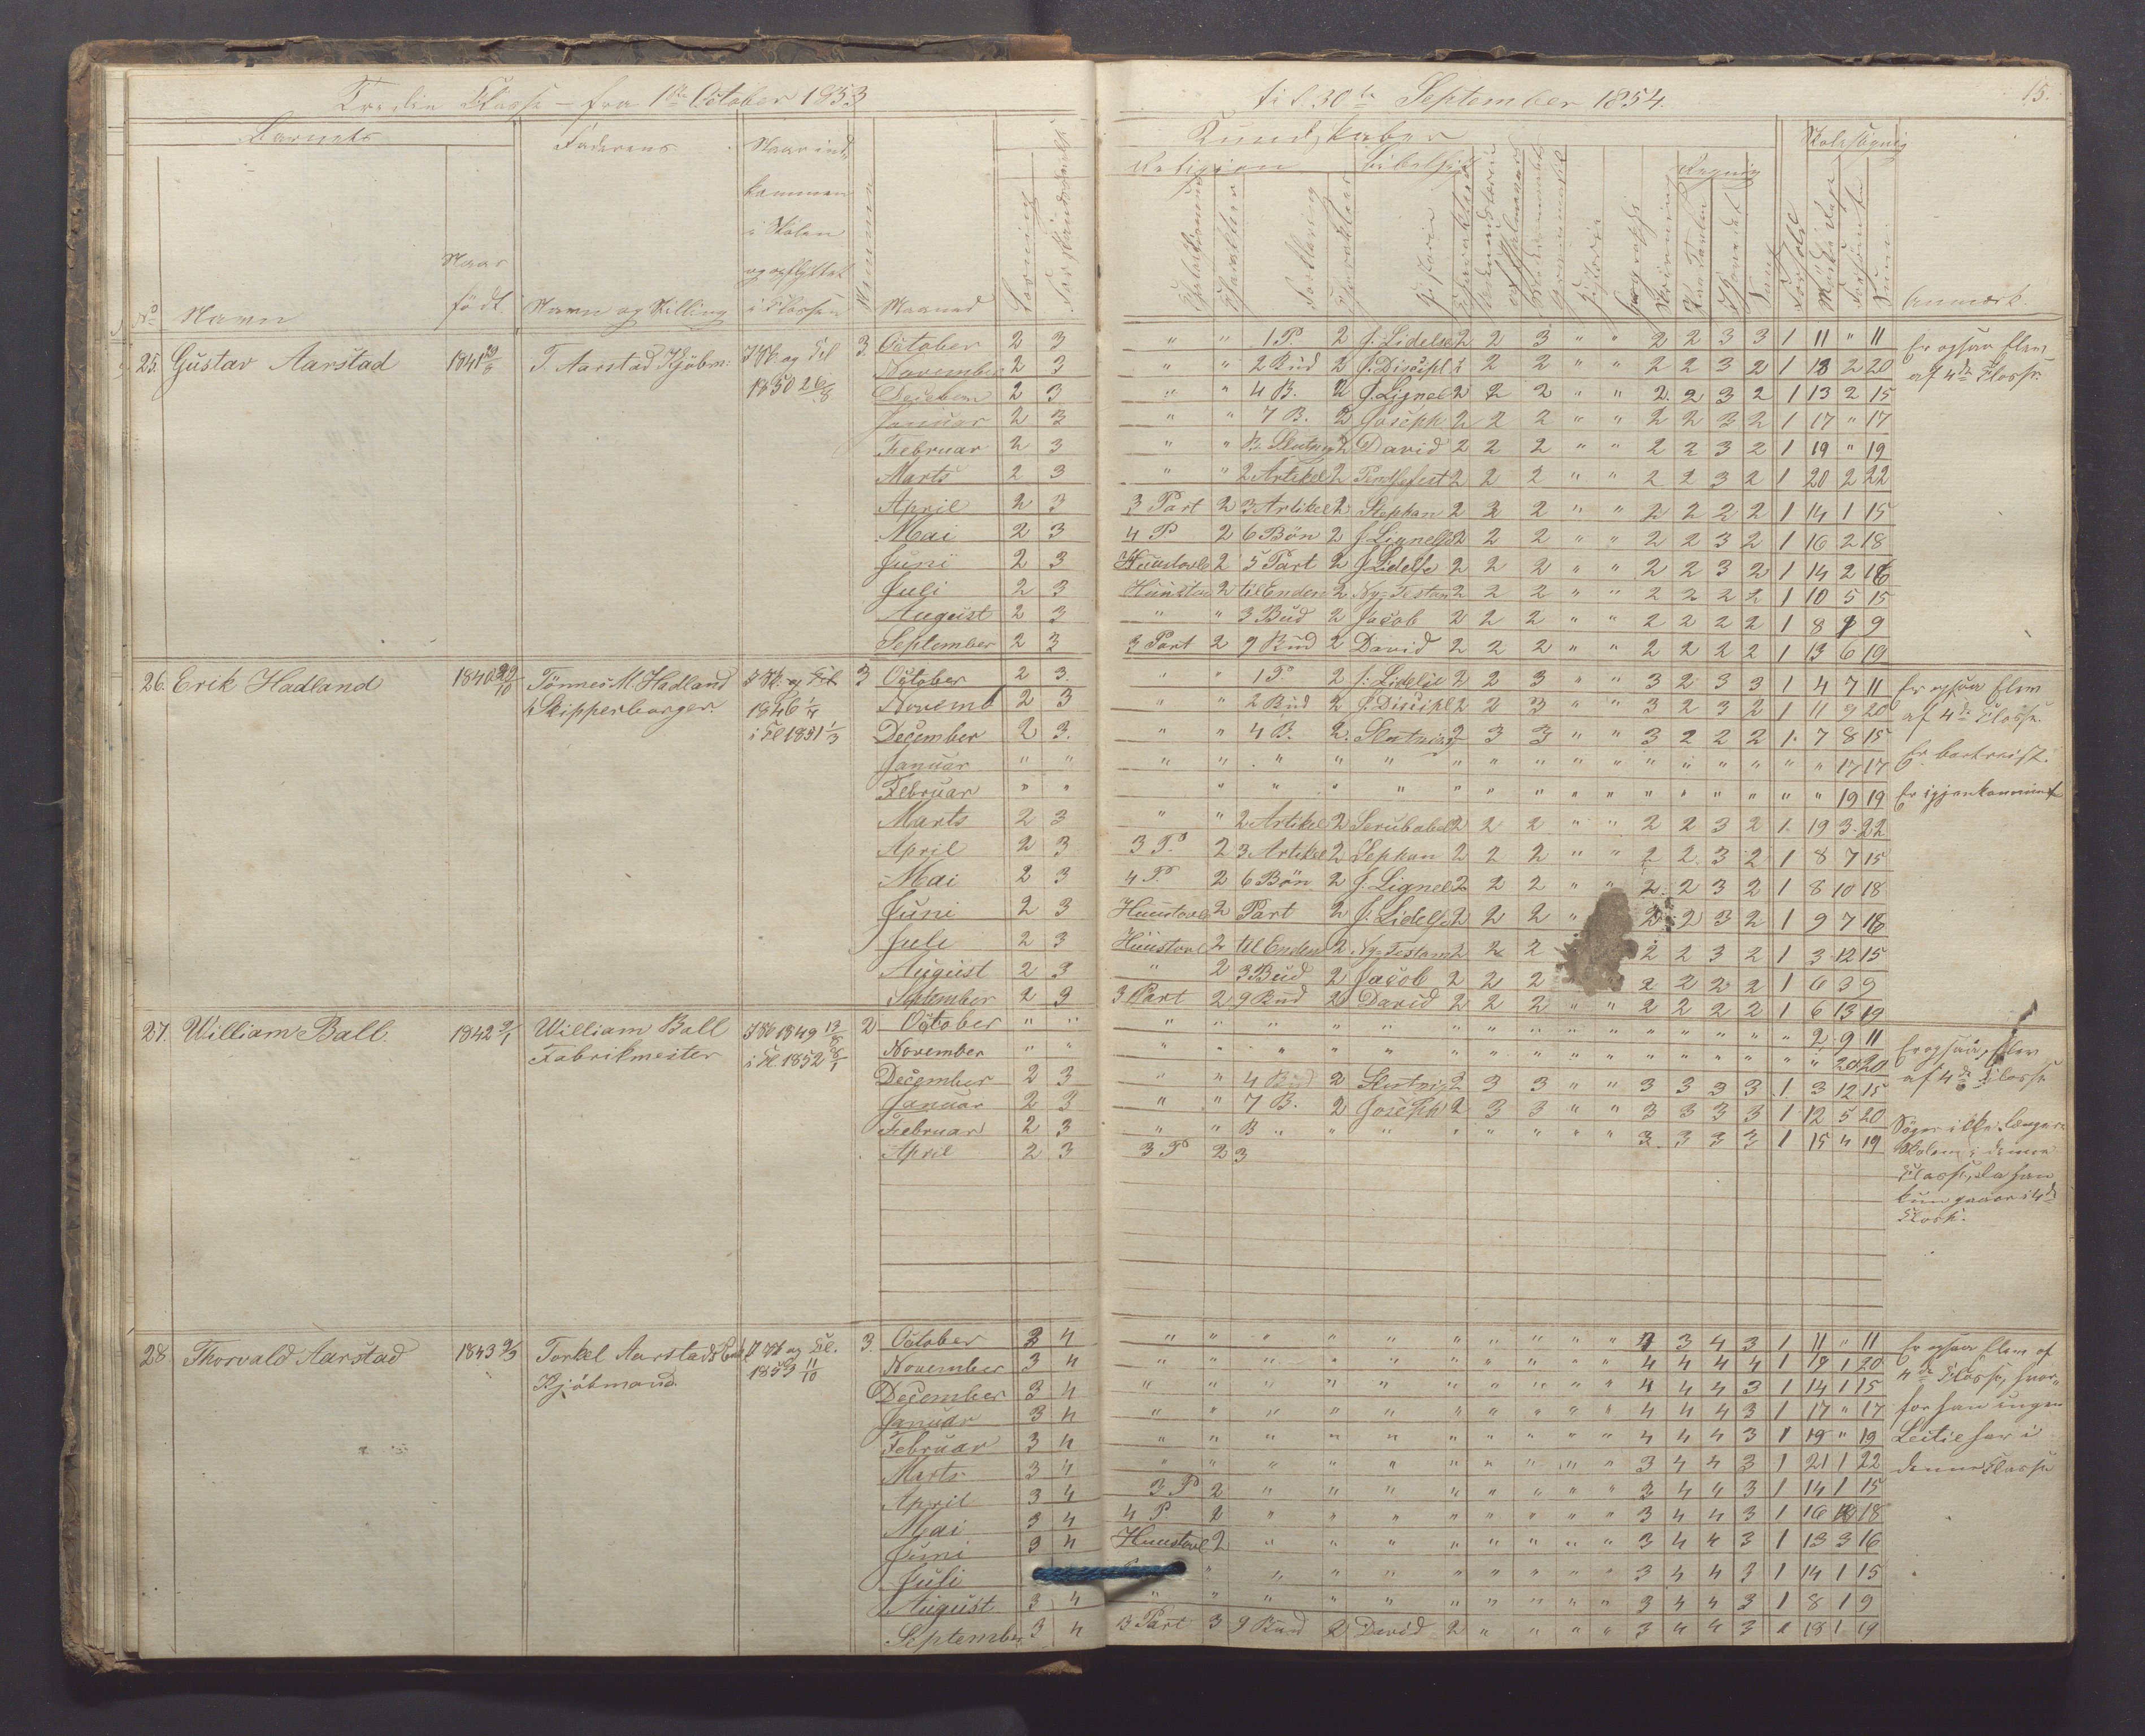 Tredie Classe – fra 1ste October 1853 til 30te September 1854. 15.
Barnets Faderens Naar ind- Kundskaber Skolesøgnig
kommen Religion Bibelhist Regnig
i Skolen
Naar og opflyttet
No Navn født. Navn og Stilling i Classen Maaned Anmærk.
25. Gustav Aarstad 1841 29/8 T. Aarstad Kjöbm: I Sk. og Cl 3. October 2 3 " " 1 P. 2 J. Lidelse 2 2 3 " " 2 2 3 3 1 11 " 11 Er ogsaa Elev
1850 26/8 November 2 3 " " 2 Bud 2 J. Discipl 2 2 2 " " 2 2 3 2 1 18 2 20 af 4de Classe.
December 2 3 " " 4 B. 2 J. Lignel 2 2 2 " " 2 2 3 2 1 13 2 15
Januar 2 3 " " 7 B. 2 Joseph 2 2 2 " " 2 2 2 2 1 17 " 17
Februar 2 3 " " B. Slutnig 2 David 2 2 2 " " 2 2 3 2 1 19 " 19
Marts 2 3 " " 2 Artikel 2 Pindsefest 2 2 2 " " 2 2 3 2 1 20 2 22
April 2 3 3 Part 2 3 Artikel 2 Stephan 2 2 2 " " 2 2 2 2 1 14 1 15
Mai 2 3 4 P 2 6 Bön 2 J. Lignelse 2 2 2 " " 2 2 3 2 1 16 2 18
Juni 2 3 Huustavle 2 5 Part 2 J. Lidelse 2 2 2 " " 2 2 3 2 1 14 2 16
Juli 2 3 Huustav 2 til Enden 2 Ny-Testam 2 2 2 " " 2 2 2 2 1 10 5 15
August 2 3 " " 3 Bud 2 Jacob 2 2 2 " " 2 2 2 2 1 8 1 9
September 2 3 3 Part 2 9 Bud 2 David 2 2 2 " " 2 2 2 2 1 13 6 19
26. Erik Hadland 1840 29/10 Tönnes M. Hadland I Sk. og Cl. 3 October 2 3. " " 1 P 2 J. Lidelse 2 2 3 " " 3 2 3 3 1 4 7 11 Er ogsaa Elev
Skipperborger. 1846 November 2 3 " " 2 Bud 2 J. Discipl 2 2 3 " " 3 2 3 2 1 11 9 20 af 4de Classe.
i Cl 1851 1/3 December 2 3. " " 4 B. 2. Slutnig 2 3 3 " " 3 2 2 2 1. 7 8 15 Er bortreist.
Januar " " " " " " " " " " " " " " " " " " 17 17
Februar " " " " " " " " " " " " " " " " " 19 19 Er igjenkommen
Marts 2 3 " " 2 Artikel 2 Serubabel 2 2 2 " " 2 2 3 2 1. 19 3. 22
April 2 3 3 P. 2 3 Artikel 2 Stephan 2 2 2 " " 2 2 3 2 1 8 7 15
Mai 2 3 4 P. 2 6 Bön 2 J. Lignel 2 2 2 " " 2 2 3 2 1 8 10 18
Juni 2 3 Huustavle 2 Part 2 J. Lidelse 2 2 2 " 2 2 3 2 1 9 7 16
Juli 2 3 Huustavl 2 til Enden 2 Ny-Testam 2 2 2 2 2 3 2 1 3 12 15
August 2 3 " 2 3 Bud 2 Jacob 2 2 2 2 2 2 2 1 6 3 9
September 2 3 3 Part 2 9 Bud 2 David 2 2 2 " " 2 2 2 2 1 6 13 19
27. William Ball. 1842 2/1 William Ball I Sk 1849 2 October " " " " " " " " " " " " " " " " " 2 9 11 Er ogsaa Elev
Fabrikmester i Cl. 1852 November " " " " " " " " " " " " " " " " " " 20 20 af 4de Classe
December 2 3 " " 4 Bud 2 Slutnig 2 3 3 " " 3 3 3 3 1 3 12 15
Januar 2 3 " " 7 B. 2 Joseph 2 3 3 " " 3 3 3 3 1 12 5 20 Søger ikke længere
Februar 2 3 " " B " " " " " " " " 3 3 3 3 1 15 4 19 Skolen i denne
April 2 3 3 P 2 3 Classe, da han
kun gaaer i 4de
Classe.
28. Thorvald Aarstad 1843 9/3 Torkel Aarstad I Sk og Cl. 3. October 3 4 " " " " " " " " " " 4 3 4 3 1 11 " 11 Er ogsaa Elev af
Kjöbmand. 1853 11/10 November 3 4 " " " " " " " " " " 4 4 4 4 1 19 1 20 4de Classe, hvor-
December 3 4 " " " " " " " " " " 4 4 4 3 1 14 1 15
Januar 3 4 " " " " " " " " " " 4 4 4 3 1 17 " 17 for han ingen
Februar 3 4 " " " " " " " " " " 4 4 4 3 1 19 " 19 Lectie har i
Marts 3 4 " " " " " " " " " " 3 4 4 3 1 21 1 22 denne Classe
April 3 4 3 P 2 " " " " " " " " 3 4 4 3 1 14 1 15
Mai 3 4 4 P 2 " " " " " " " " 3 4 4 3 1 16 18
Juni 3 4 Huustavl 2 " " " " " " " " 3 4 4 3 1 13 3 16
Juli " " " " " " " " " 3 4 4 3 1 14 1 15
August 3 4 " " " " " " " " " " 3 4 4 3 1 8 1 9
September 3 4 3 Part 3 9 Bud 2 David 2 " " " " 3 4 4 3 1 18 1 19